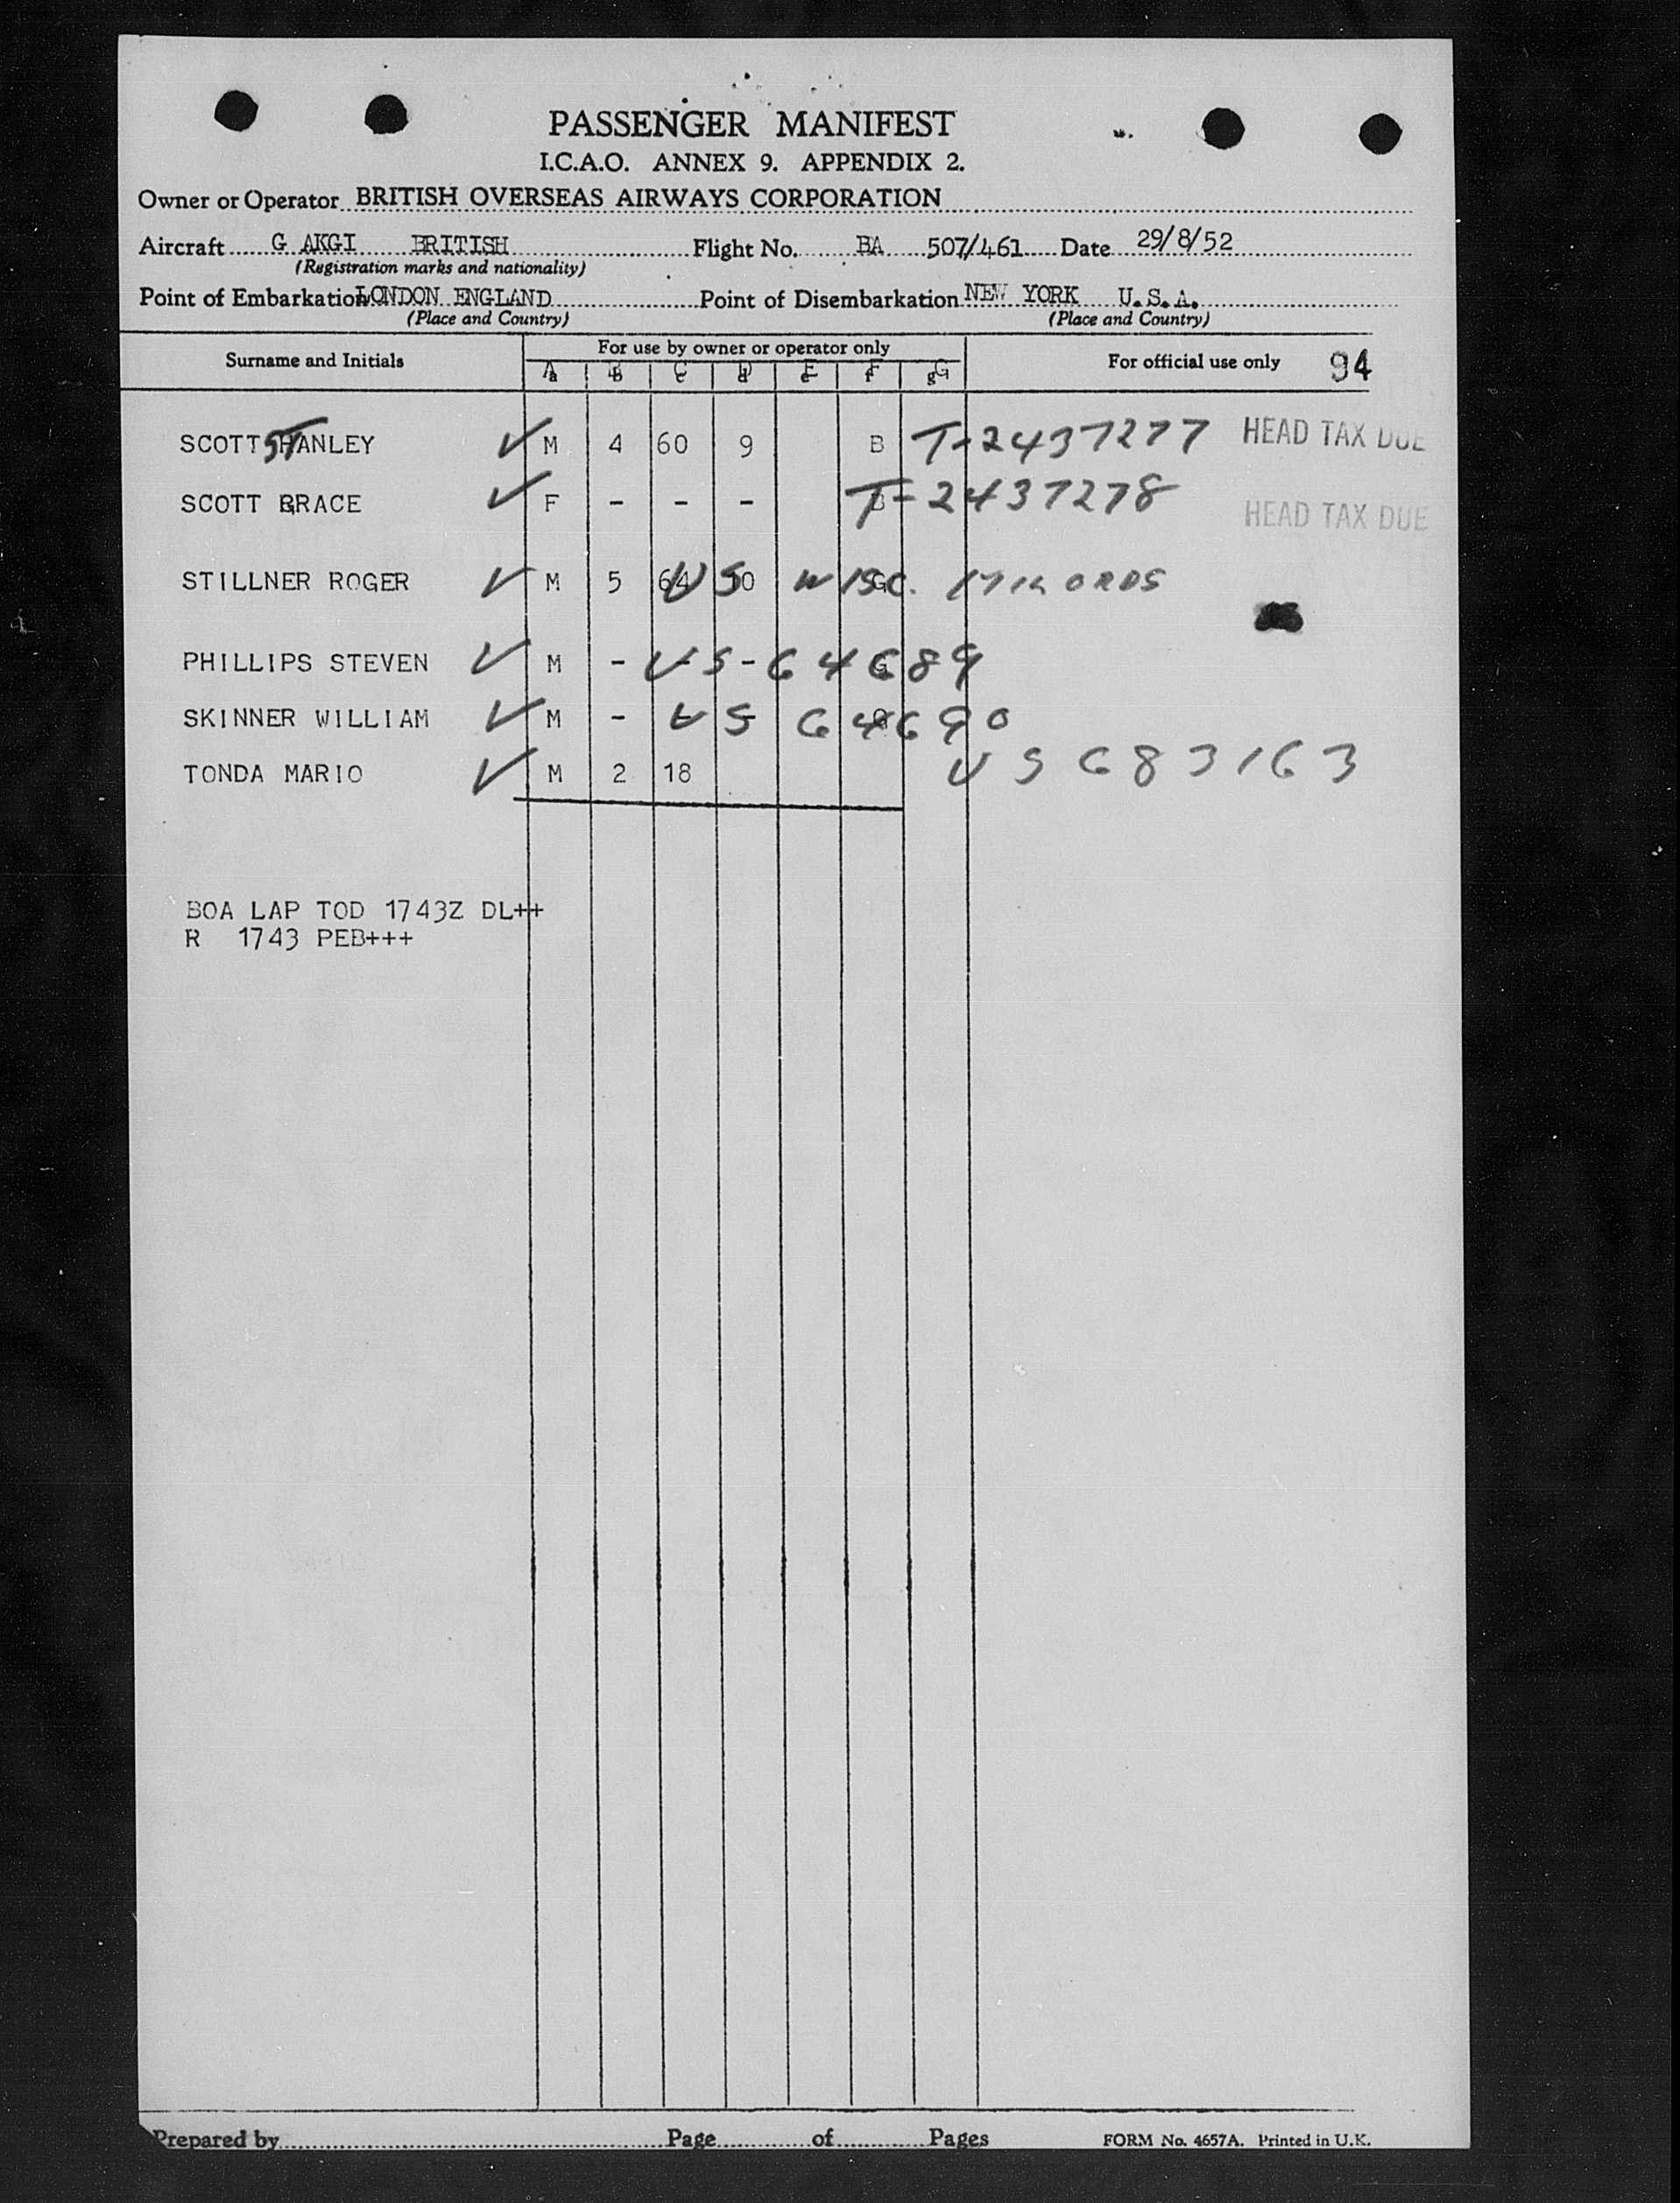 PASSENGER MANIFEST
I.C.A.O. ANNEX 9. APPENDIX 2.
Owner or Operator BRITISH OVERSEAS AIRWAYS CORPORATION
Aircraft G AKGI BRITISH Flight No. BA 507/461 Date 29/8/52
(Registration marks and nationality)
Point of Embarkation LONDON ENGLAND Point of Disembarkation NEW YORK U.S.A.
(Place and Country) (Place and Country)
Surname and Initials For use by owner or operator only For official use only 94
A B C D E F G
SCOTT STANLEY M 4 60 9 B T-2437277 HEAD TAX DUE
SCOTT GRACE F - - - B T-2437278 HEAD TAX DUE
STILLNER ROGER M 5 64 US 50 WISC. G
PHILLIPS STEVEN M - US-64689
SKINNER WILLIAM M - US 64690
TONDA MARIO M 2 18 US 683163
BOA LAP TOD 1743Z DL++
R 1743 PEB+++
Prepared by Page of Pages FORM No. 4657A. Printed in U.K.